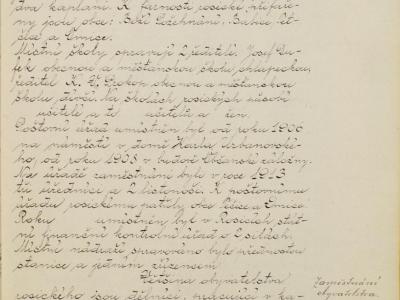 dva kapláni. K farnosti rosické přifaře-
ny jsou obce: Bílé Požehnání, Babice, Tet-
čice a Omice.
Místní školy spravují 2 ředitelé. Josef
obecnou a měšťanskou školu chlapeckou,
ředitel K. obecnou a měšťanskou
školu dívčí. Na školách rosických působí
učitelé a to učitelů a žen
Poštovní úřad umístěn byl od roku 1906
na náměstí v domě Karla Urbanovské-
ho, od roku 1908 v budově Občanské záložny.
Na úřadě zaměstnáni byli v roce 1913
tři úředníci a 2 listonoši. K poštovnímu
úřadu rosickému patřily obce Tetčice a Omice.
Roku umístěn byl v Rosicích stát-
ní finanční kontrolní úřad o 5 silách.
Místní nádraží spravováno bylo přednostou
stanice a jedním zřízencem.
Většina obyvatelstva
rosického jsou dělníci, pracující v ka-
Zaměstnání
obyvatelstva.